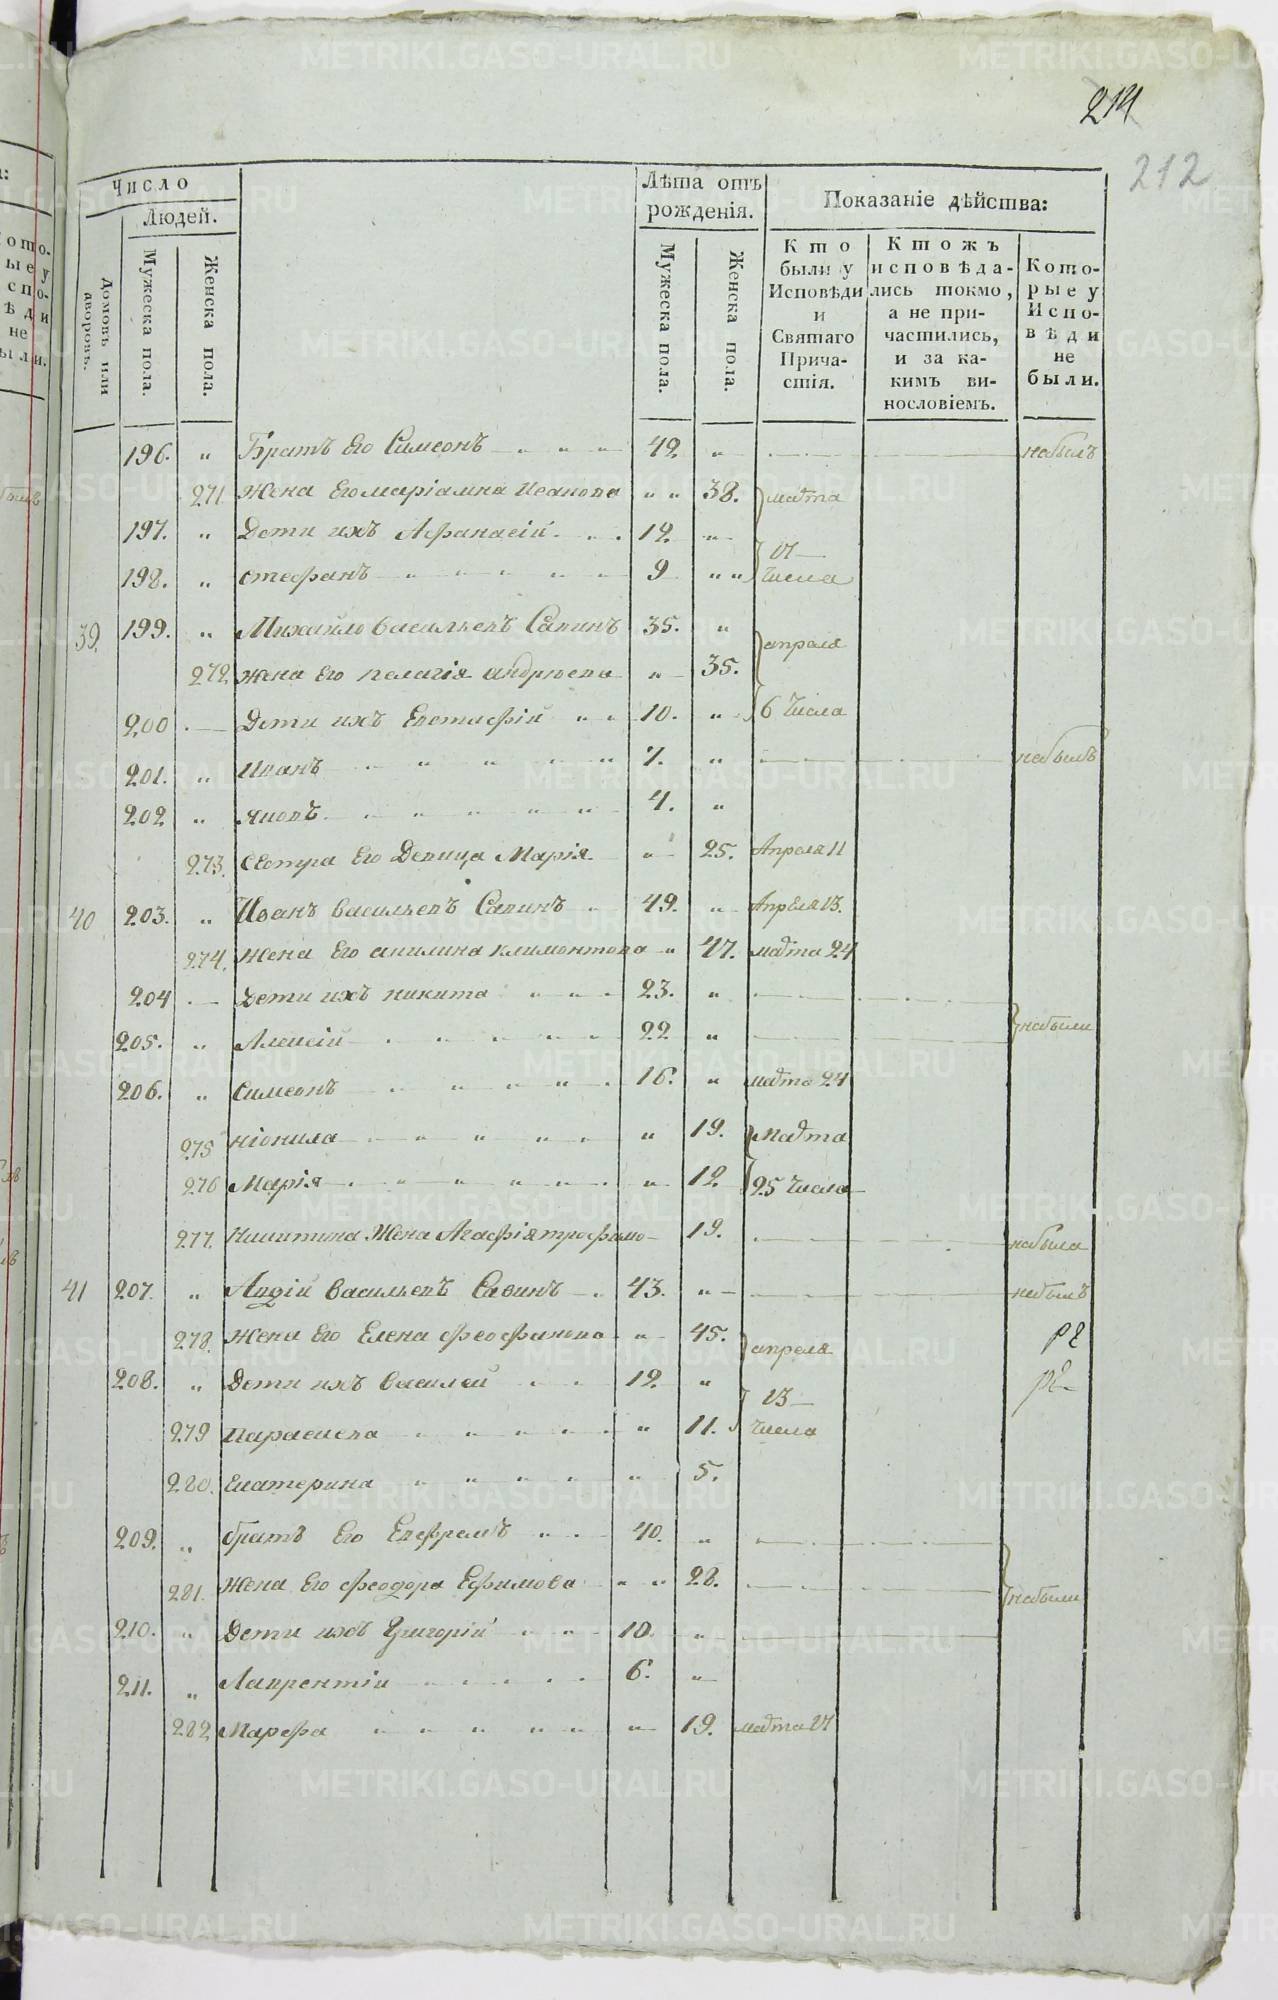 214
212
Число
Людей.
Домовъ или дворовъ.
Мужеска пола.
Женска пола.
Лѣта отъ рожденія.
Мужеска пола.
Женска пола.
Показаніе дѣйства:
Кто были у Исповѣди и Святаго Причастія.
Ктожъ исповѣдались токмо, а не причастились, и за какимъ винословіемъ.
Которые у Исповѣди не были.
196. " Братъ Его Симеонъ 42 " небылъ
271 Жена Его маріамна Иванова " " 38. марта
197. " Дети ихъ Афанасій 12. "
198. " стефанъ 9 " " числа
39. 199. " Михайло васильевъ Савинъ 35. " апреля
272 жена Его пелагія андрюева " 35.
200 Дети ихъ Евстафій 10. " 6 числа
201. " Иванъ 7. " небылъ
202 " яковъ 4. "
273. сестра Его Девица Марія " 25. Апреля 11
40 203. " Иванъ васильевъ Савинъ 49. " Апреля 13.
274. жена Его акилина климонтова " 47. марта 24
204 Дети ихъ никита 23. " небыли
205. " Алексій 22 "
206. " Симеонъ 16. " марта 24
275 ніонила " 19. марта
276 Марія " 12 25 числа
277. никитина Жена Агафія трофимо 19. небыла
41 207. " Авдій васильевъ Савинъ 43. " небылъ
278. жена Его Елена феофанова " 45. апреля
208. " Дети ихъ василей 12. " 13
279 Параскева " 11. числа
280. екатерина " 5.
209. " братъ Его Евфремъ 40. "
281. жена Его феодора Ефимова " " 28. небыли
210. " Дети ихъ Григорій 10. "
211. " Лаврентій 6. "
282 Марфа " 19. марта
METRIKI.GASO-URAL.RU